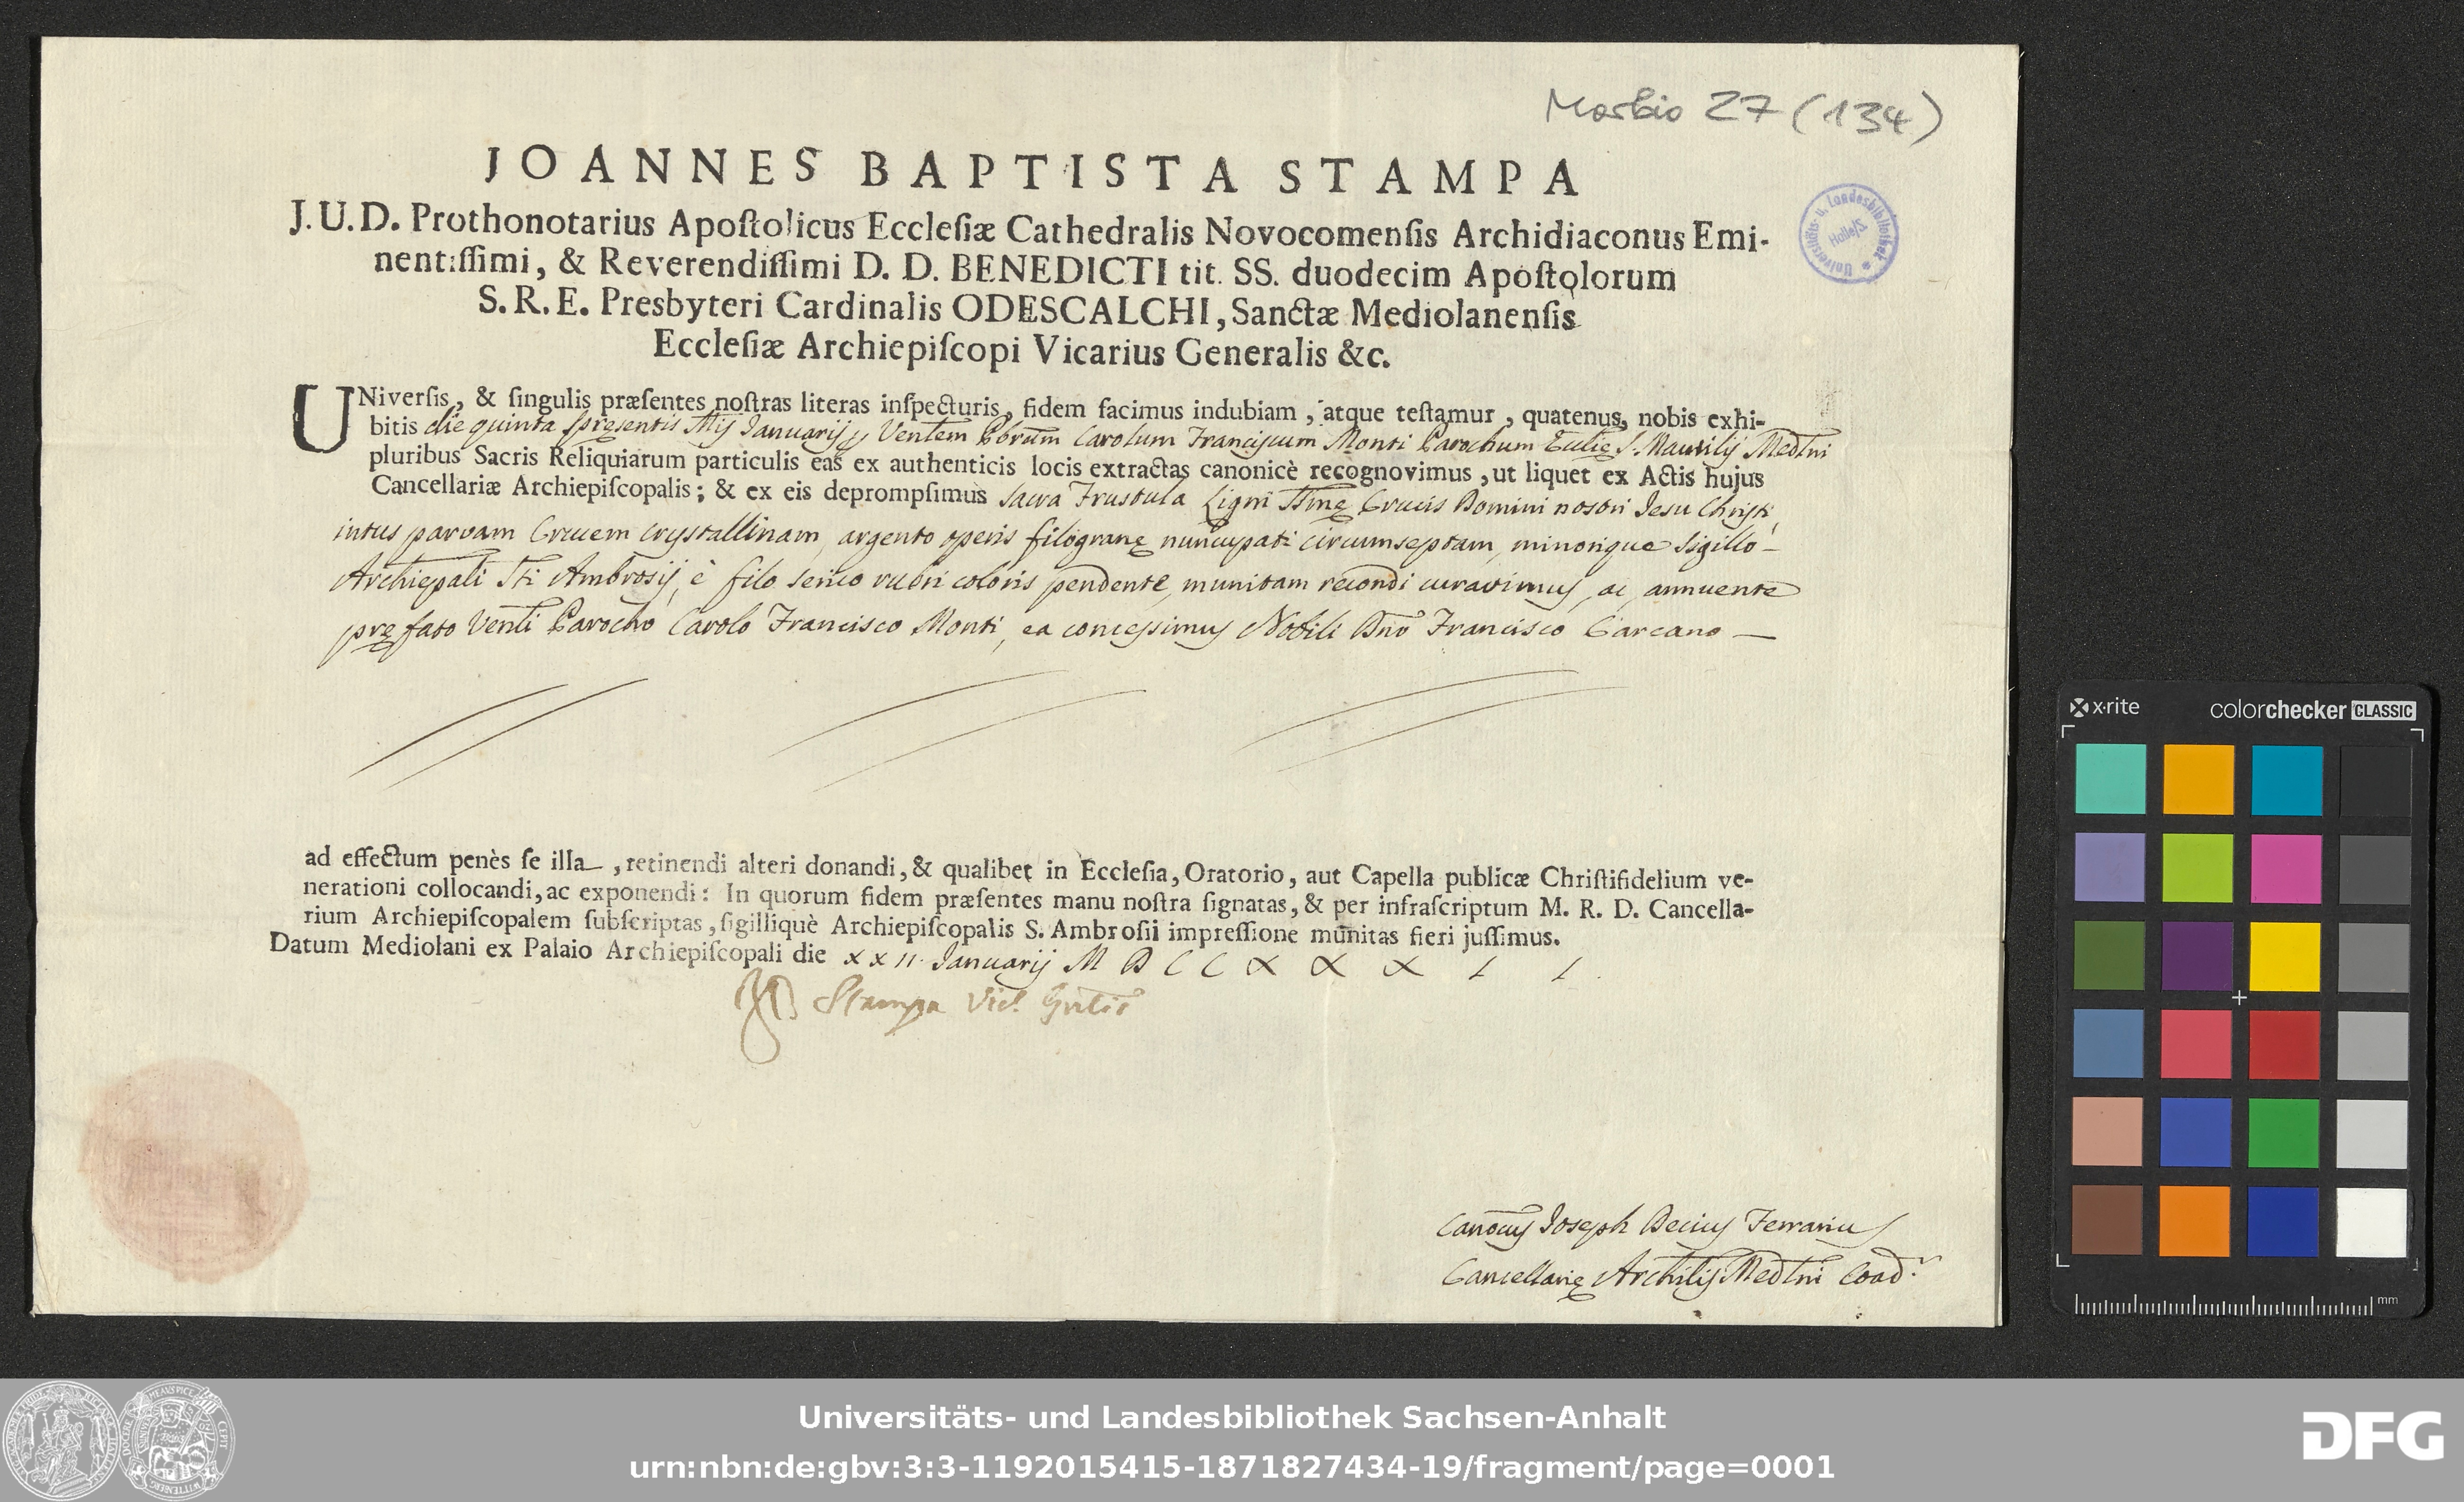 Morbio 27 (134)
JOANNES BAPTISTA STAMPA
J. U. D. Prothonotarius Apoſtolicus Eccleſiæ Cathedralis Novocomenſis Archidiaconus Emi-
nentiſſimi, & Reverendiſſimi D. D. BENEDICTI tit. SS. duodecim Apoſtolorum
S. R. E. Presbyteri Cardinalis ODESCALCHI, Sanctæ Mediolanenſis
Eccleſiæ Archiepiſcopi Vicarius Generalis &c.
Universitäts- u. Landesbibliothek
Halle/S
UNiverſis, & ſingulis præſentes noſtras literas inſpecturis, fidem facimus indubiam, atque teſtamur, quatenus, nobis exhi-
bitis die quinta Januarij Carolum Franciscum Monti Parochum Ecclię S. Maurilij Medlni
pluribus Sacris Reliquiarum particulis eas ex authenticis locis extractas canonicè recognovimus, ut liquet ex Actis hujus
Cancellariæ Archiepiſcopalis; & ex eis deprompſimus Sacra Frustula Ligni Ssmę Crucis Domini nostri Jesu Christi,
intus parvam Crucem crystallinam, argento operis filogranę nuncupati circumseptam, minorique Sigillo
Archiepali Sti Ambrosij, è filo serico rubri coloris pendente, munitam recondi curavimus, ac, annuente
pręfato Venli Parocho Carolo Francisco Monti, ea concessimus Nobili Dno Francisco Carcano
ad effectum penès ſe illa, retinendi alteri donandi, & qualibet in Eccleſia, Oratorio, aut Capella publicæ Chriſtifidelium ve-
nerationi collocandi, ac exponendi: In quorum fidem præſentes manu noſtra ſignatas, & per infraſcriptum M. R. D. Cancella-
rium Archiepiſcopalem ſubſcriptas, ſigilliquè Archiepiſcopalis S. Ambroſii impreſſione munitas fieri juſſimus.
Datum Mediolani ex Palaio Archiepiſcopali die xxii Januarij MDCCXXXII.
Stampa Vic. Gnlis
Canocus Joseph Decius Ferrarius
Cancellarię Archilis Medlni Coadr
x-rite
colorchecker CLASSIC
mm
Universitäts- und Landesbibliothek Sachsen-Anhalt
urn:nbn:de:gbv:3:3-1192015415-1871827434-19/fragment/page=0001
DFG